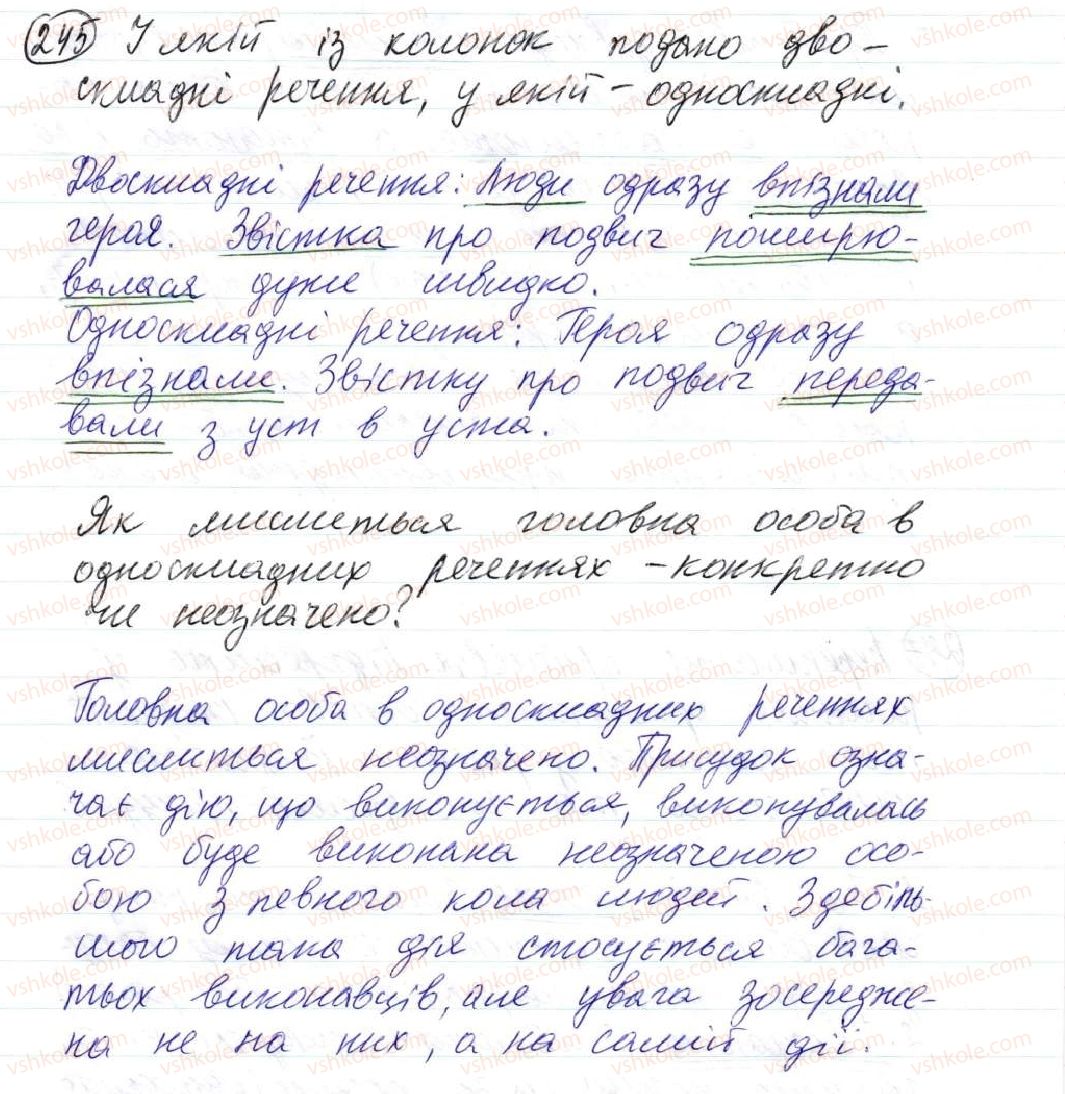 245 У якій із колонок подано дво-
складні речення, у якій - односкладні.
Двоскладні речення: Люди одразу впізнали
героя. Звістка про подвиг поширю-
валася дуже швидко.
Односкладні речення: Героя одразу
впізнали. Звістку про подвиг переда-
вали з уст в уста.
Як мислиться головна особа в
односкладних реченнях - конкретно
чи неозначено?
Головна особа в односкладних реченнях
мислиться неозначено. Присудок озна-
чає дію, що виконується, виконувалась
або буде виконана неозначеною осо-
бою з певного кола людей. Здебіль-
шого така дія стосується бага-
тьох виконавців, але увага зосередже-
на не на них, а на самій дії.